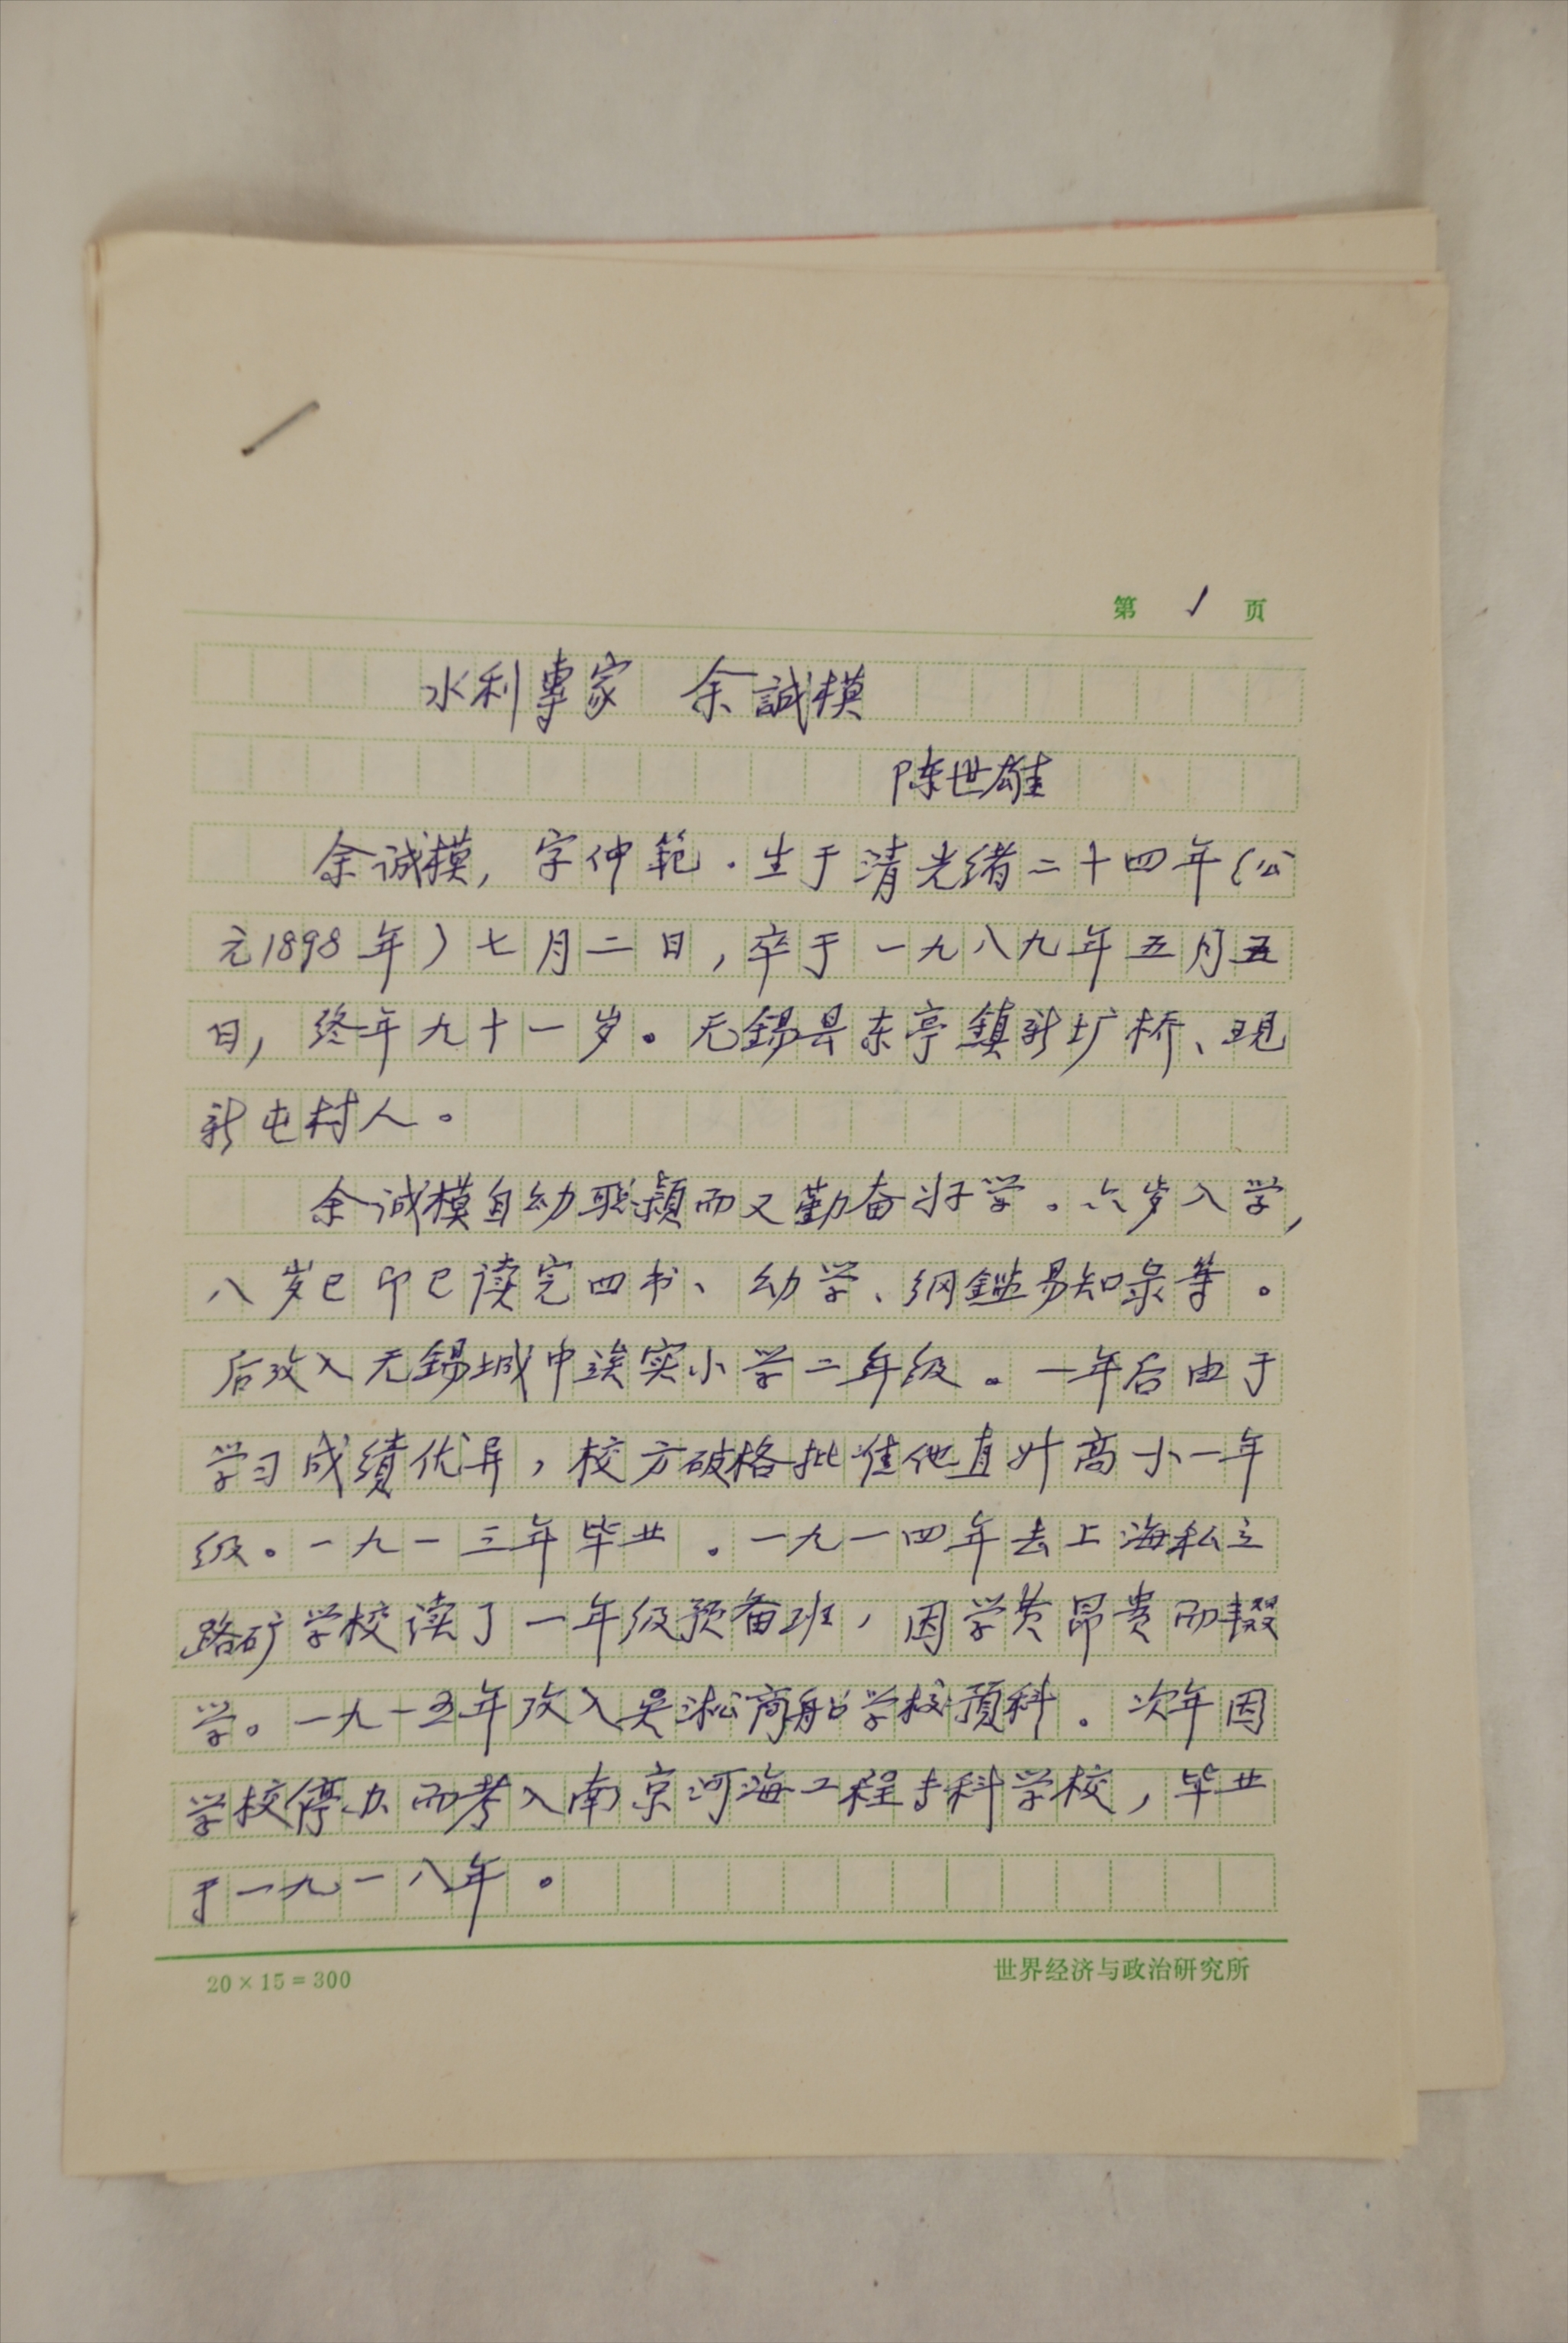 第 1 页
水利專家 余誠模
陈世雄
余诚模，字仲範．生于清光绪二十四年（公
元1898年）七月二日，卒于一九八九年五月五
日，终年九十一岁。无锡县东亭鎮新圹桥、现
新屯村人。
余诚模自幼聪颖而又勤奋好学。六岁入学，
八岁已印已读完四书、幼学、纲鑑易知录等。
后考入无锡城中竢实小学二年级。一年后由于
学习成績优异，校方破格批准他直升高小一年
级。一九一三年毕业．一九一四年去上海私立
路矿学校读了一年级预备班，因学费昂贵而辍
学。一九一五年考入吴淞商船学校预科．次年因
学校停办而考入南京河海工程专科学校，毕业
于一九一八年。
20×15=300 世界经济与政治研究所